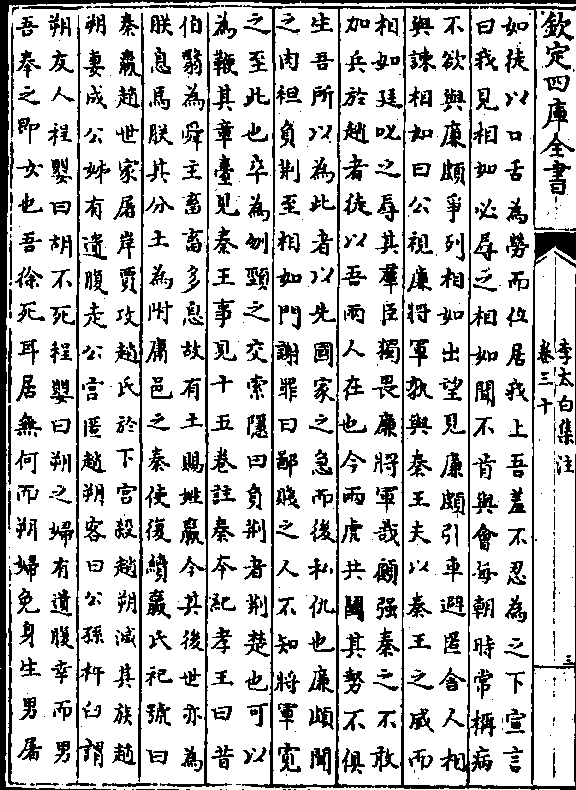 欽定四庫全書
李太白集注
卷三十
三
如徒以口舌為勞而位居我上吾羞不忍為之下宣言
曰我見相如必辱之相如聞不肯與會每朝時常稱病
不欲與廉頗爭列相如出望見廉頗引車避匿舍人相
與諫相如曰公視廉將軍孰與秦王夫以秦王之威而
相如廷叱之辱其羣臣獨畏廉將軍哉顧强秦之不敢
加兵於趙者徒以吾兩人在也今兩虎共鬭其勢不俱
生吾所以為此者以先國家之急而後私仇也廉頗聞
之肉袒負荆至相如門謝罪曰鄙賤之人不知將軍寛
之至此也卒為刎頸之交索隱曰負荆者荆楚也可以
為鞭其章臺見秦王事見十五卷註秦本紀孝王曰昔
伯翳為舜主畜畜多息故有土賜姓嬴今其後世亦為
朕息馬朕其分土為附庸邑之秦使復續嬴氏祀號曰
秦嬴趙世家屠岸賈攻趙氏於下宫殺趙朔滅其族趙
朔妻成公姊有遺腹走公宫匿趙朔客曰公孫杵臼謂
朔友人程嬰曰胡不死程嬰曰朔之婦有遺腹幸而男
吾奉之即女也吾徐死耳居無何而朔婦免身生男屠